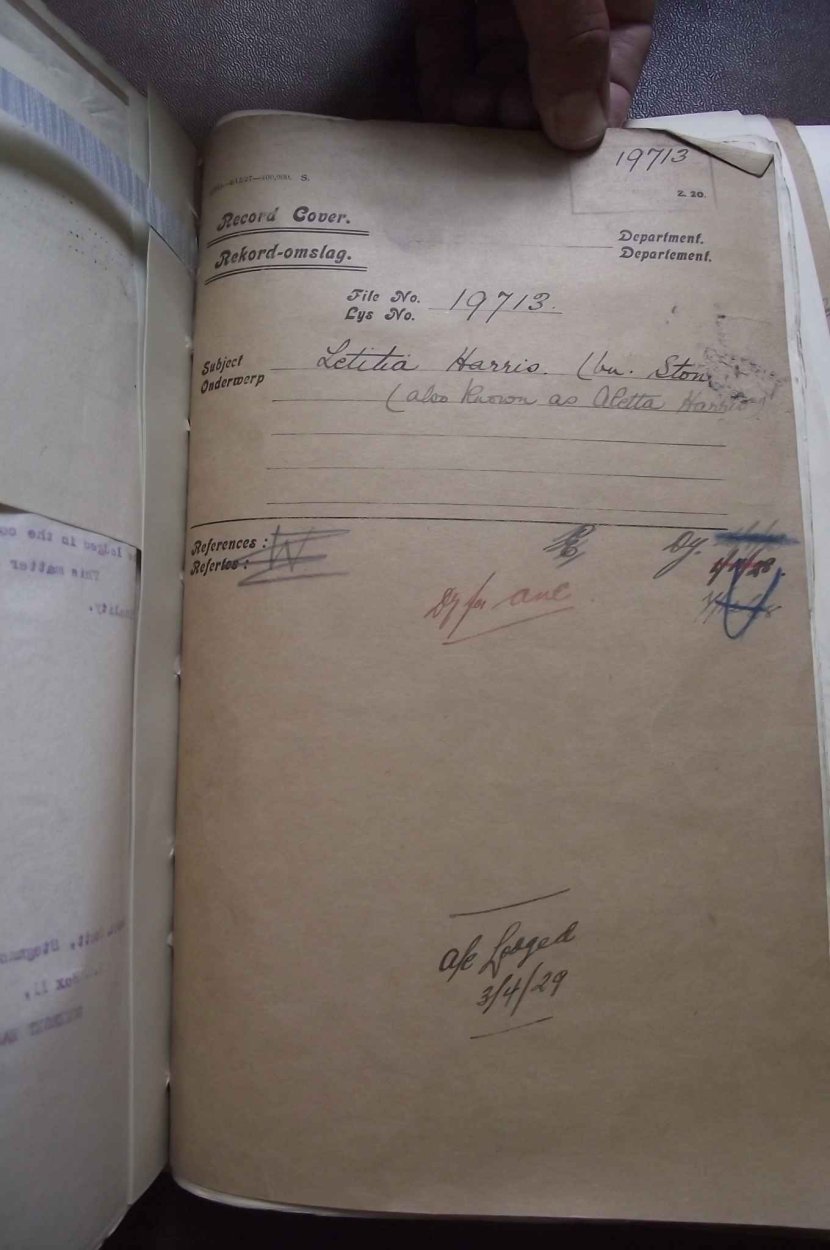 19713
S.
Z. 20.
Record Cover.
Rekord-omslag.
Department.
Departement.
File No. 19713.
Lys No.
Subject Letitia Harris. (bn. Ston
Onderwerp (also known as Aletta Harris)
References :
Refertes :
Dy.
Dy for
a/c Lodged
3/4/29
lodged in the
This matter
Box 11,